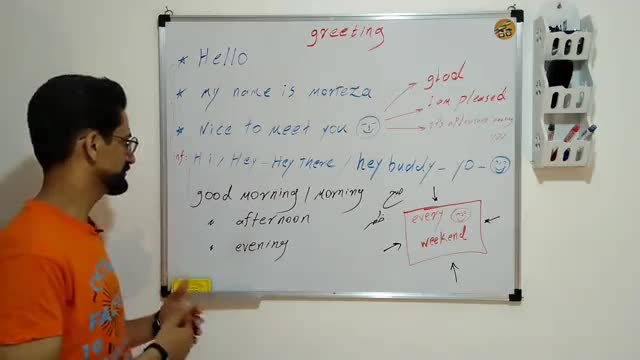 greeting
* Hello
* my name is morteza
glad
i am pleased
* Nice to meet you
it's a pleasure
inf: Hi / Hey - Hey there / hey buddy - yo -
good morning / morning صبح
• afternoon ظهر
• evening
every
weekend